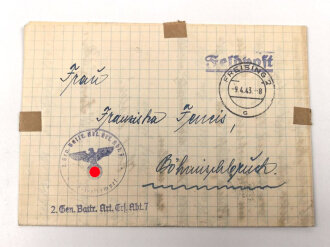 Feldpost
FREISING 2
-9.4.43.-8
c
Frau
Franziska
Böhmischbruck
2. Gen. Battr. Art. Ers. Abt. 7